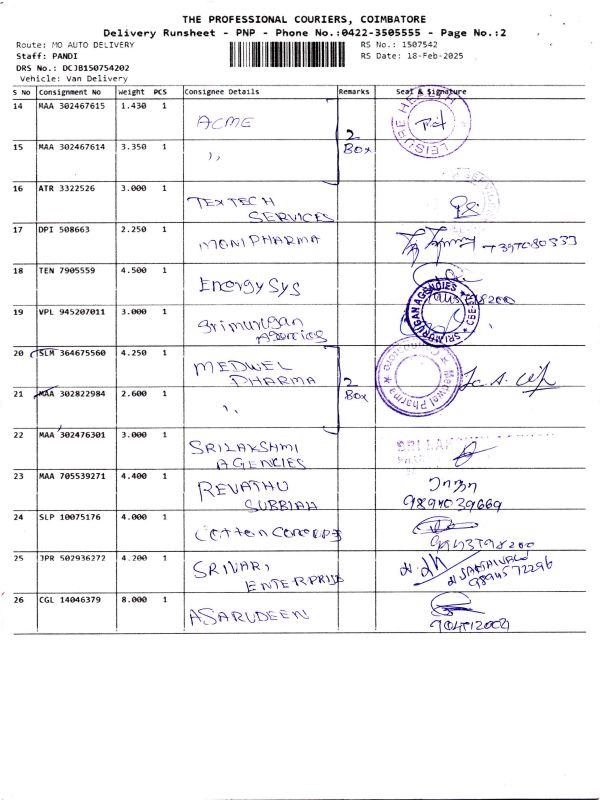 THE PROFESSIONAL COURIERS, COIMBATORE
Delivery Runsheet - PNP - Phone No.:0422-3505555 - Page No.:2
Route: MO AUTO DELIVERY RS No.: 1507542
Staff: PANDI RS Date: 18-Feb-2025
DRS No.: DCJB150754202
Vehicle: Van Delivery
S No Consignment No Weight PCS Consignee Details Remarks Seal & Signature
14 MAA 302467615 1.430 1 ACME 2 Box LEISURE HEALTH
15 MAA 302467614 3.350 1 ,,
16 ATR 3322526 3.000 1 TEXTECH
SERVICES
17 DPI 508663 2.250 1 MONI PHARMA
18 TEN 7905559 4.500 1 Energy Sys
19 VPL 945207011 3.000 1 Srimurugan
Agencies SRI MURUGAN AGENCIES CBE
20 SLM 364675560 4.250 1 MEDWEL
PHARMA 2 Box Medwel Pharma Coimbatore
21 MAA 302822984 2.600 1 ,,
22 MAA 302476301 3.000 1 SRILAKSHMI
AGENCIES SRI
23 MAA 705539271 4.400 1 REVATHU
SUBBIAH 9894039669
24 SLP 10075176 4.000 1 Cotton Concepts
25 JPR 502936272 4.200 1 SRIVARI
ENTERPRISE 9894572296
26 CGL 14046379 8.000 1 ASARUDEEN